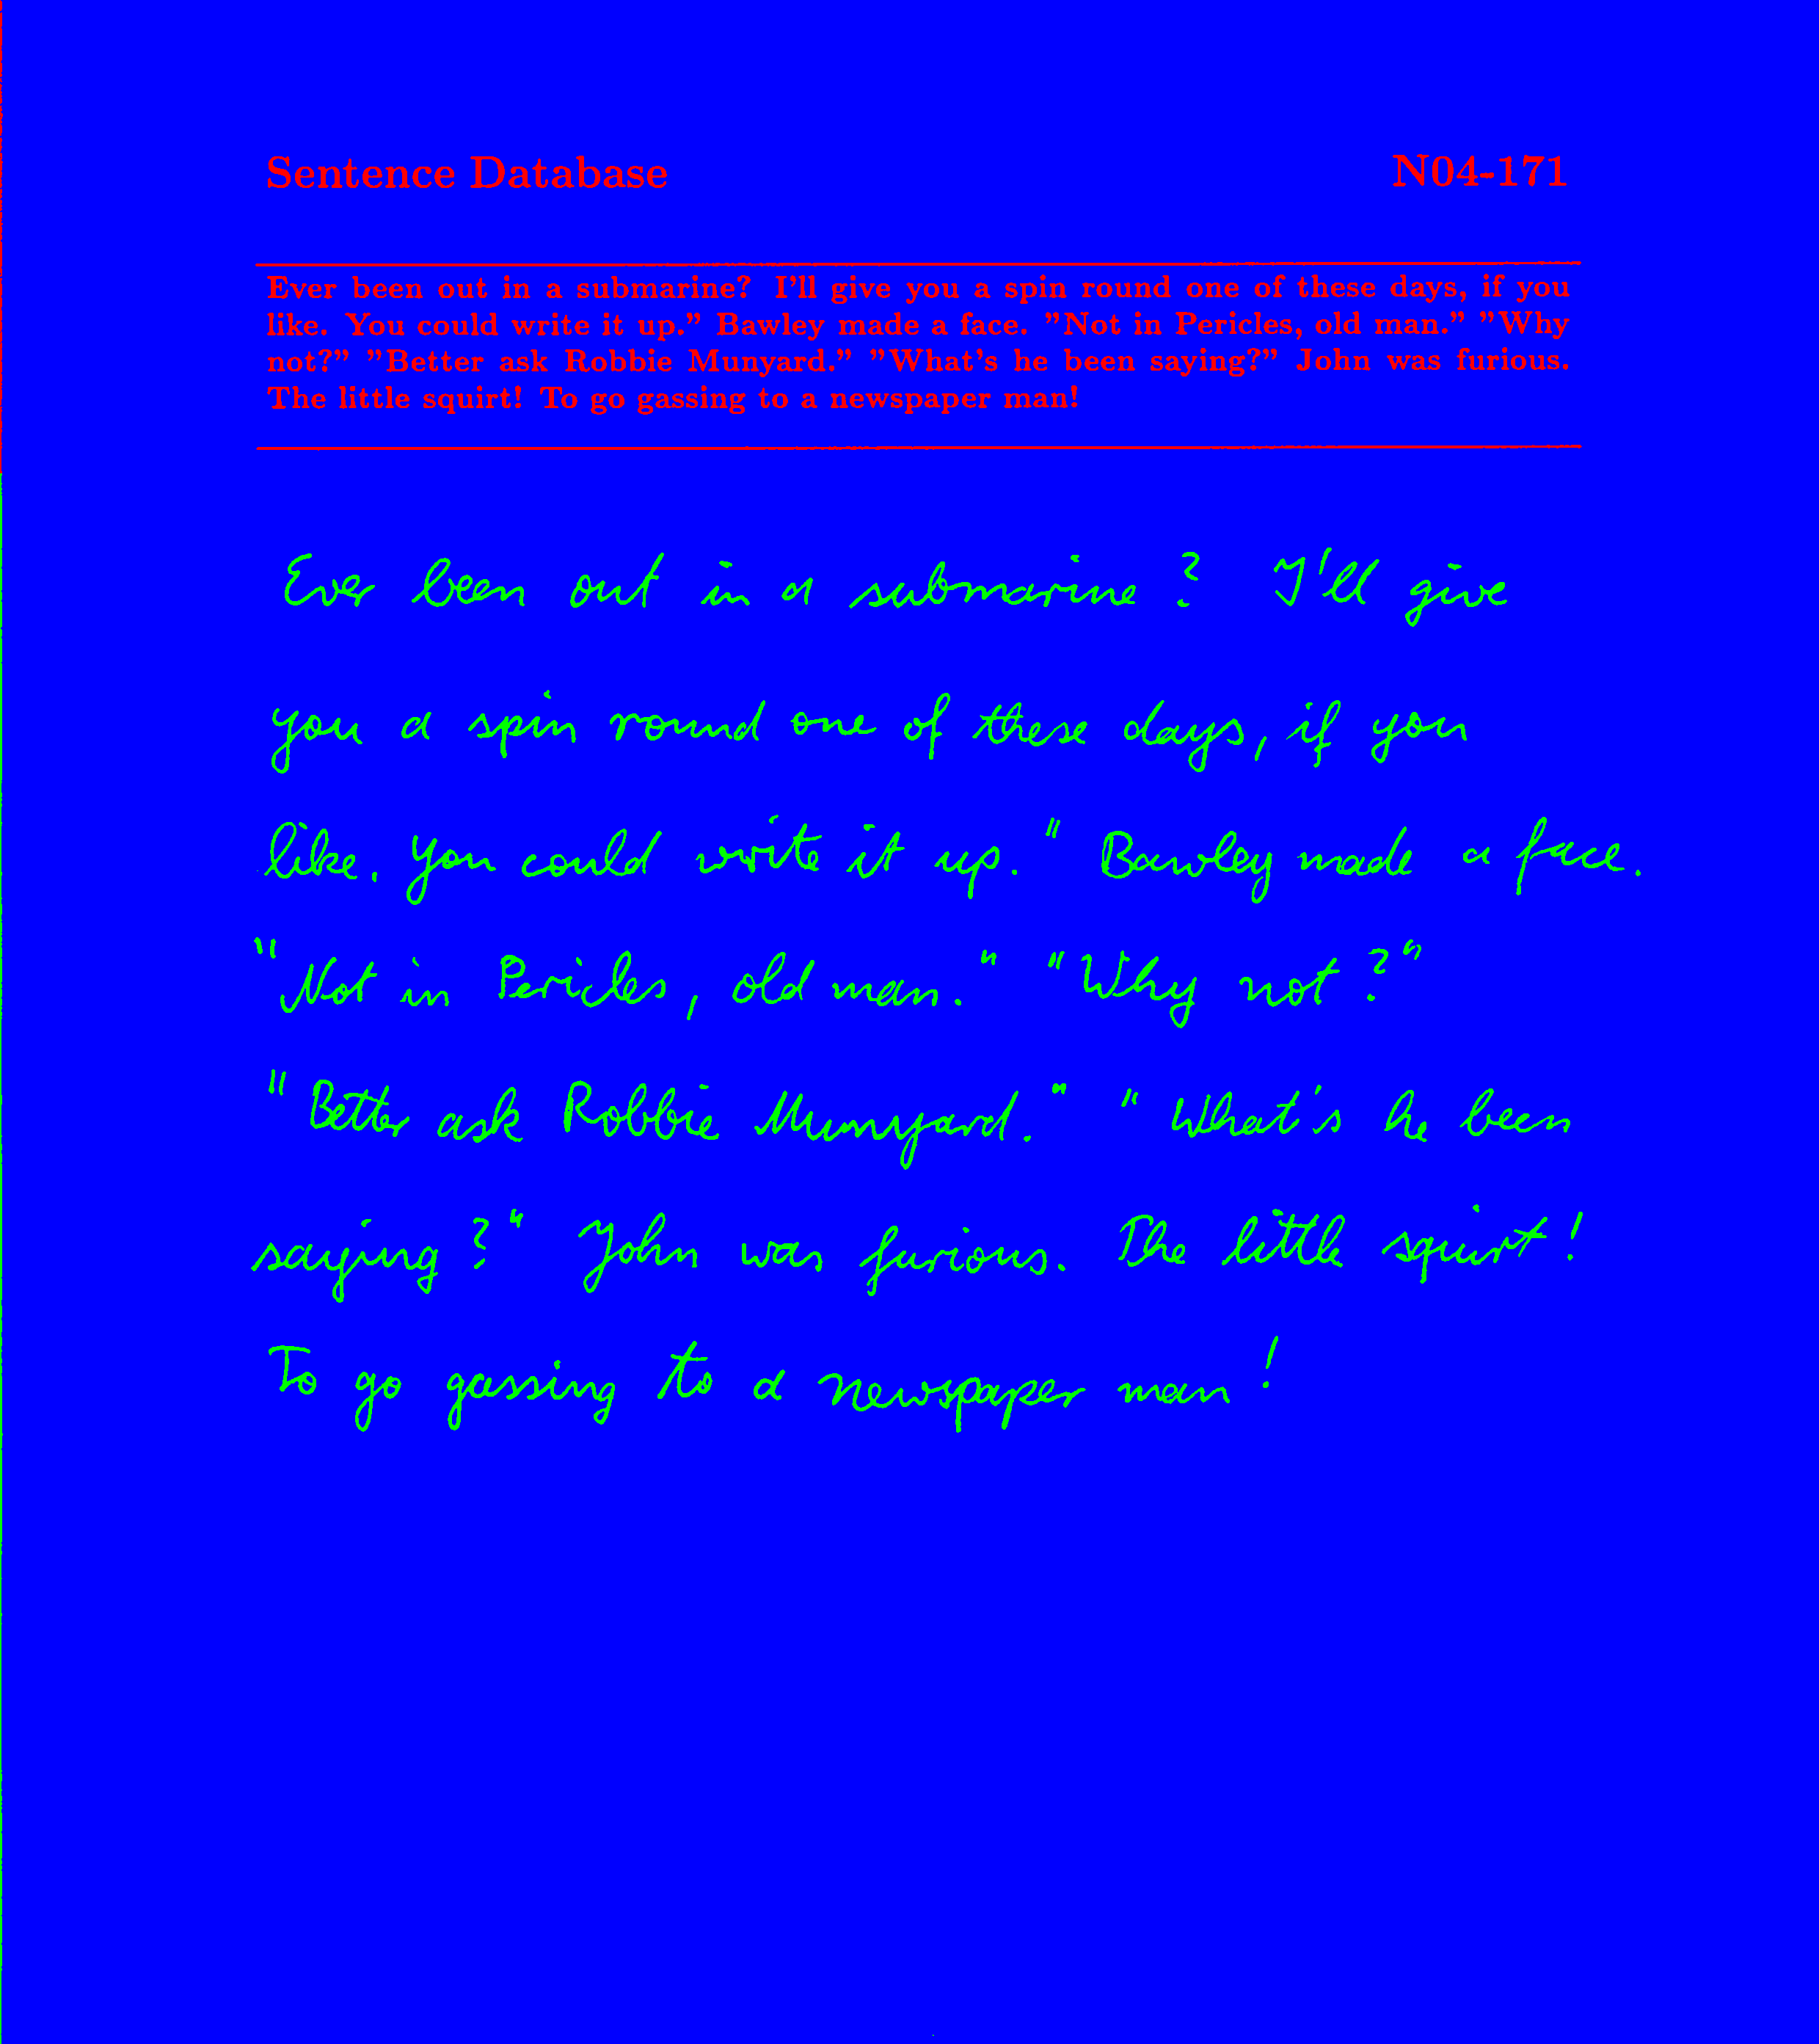 Sentence Database N04-171
Ever been out in a submarine? I'll give you a spin round one of these days, if you
like. You could write it up." Bawley made a face. "Not in Pericles, old man." "Why
not?" "Better ask Robbie Munyard." "What's he been saying?" John was furious.
The little squirt! To go gassing to a newspaper man!
Ever been out in a submarine? I'll give
you a spin round one of these days, if you
like. You could write it up." Bawley made a face.
"Not in Pericles, old man." "Why not?"
"Better ask Robbie Munyard." "What's he been
saying?" John was furious. The little squirt!
To go gassing to a newspaper man!